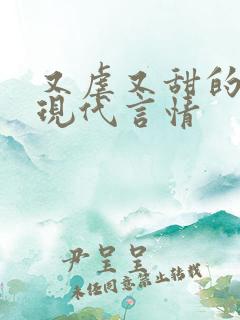 又虐又甜的
現代言情
尹呈呈
未经同意禁止转载